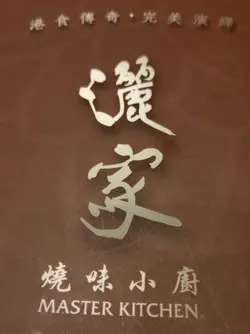 港食傳奇·完美演繹
灑
家
燒味小廚
MASTER KITCHEN